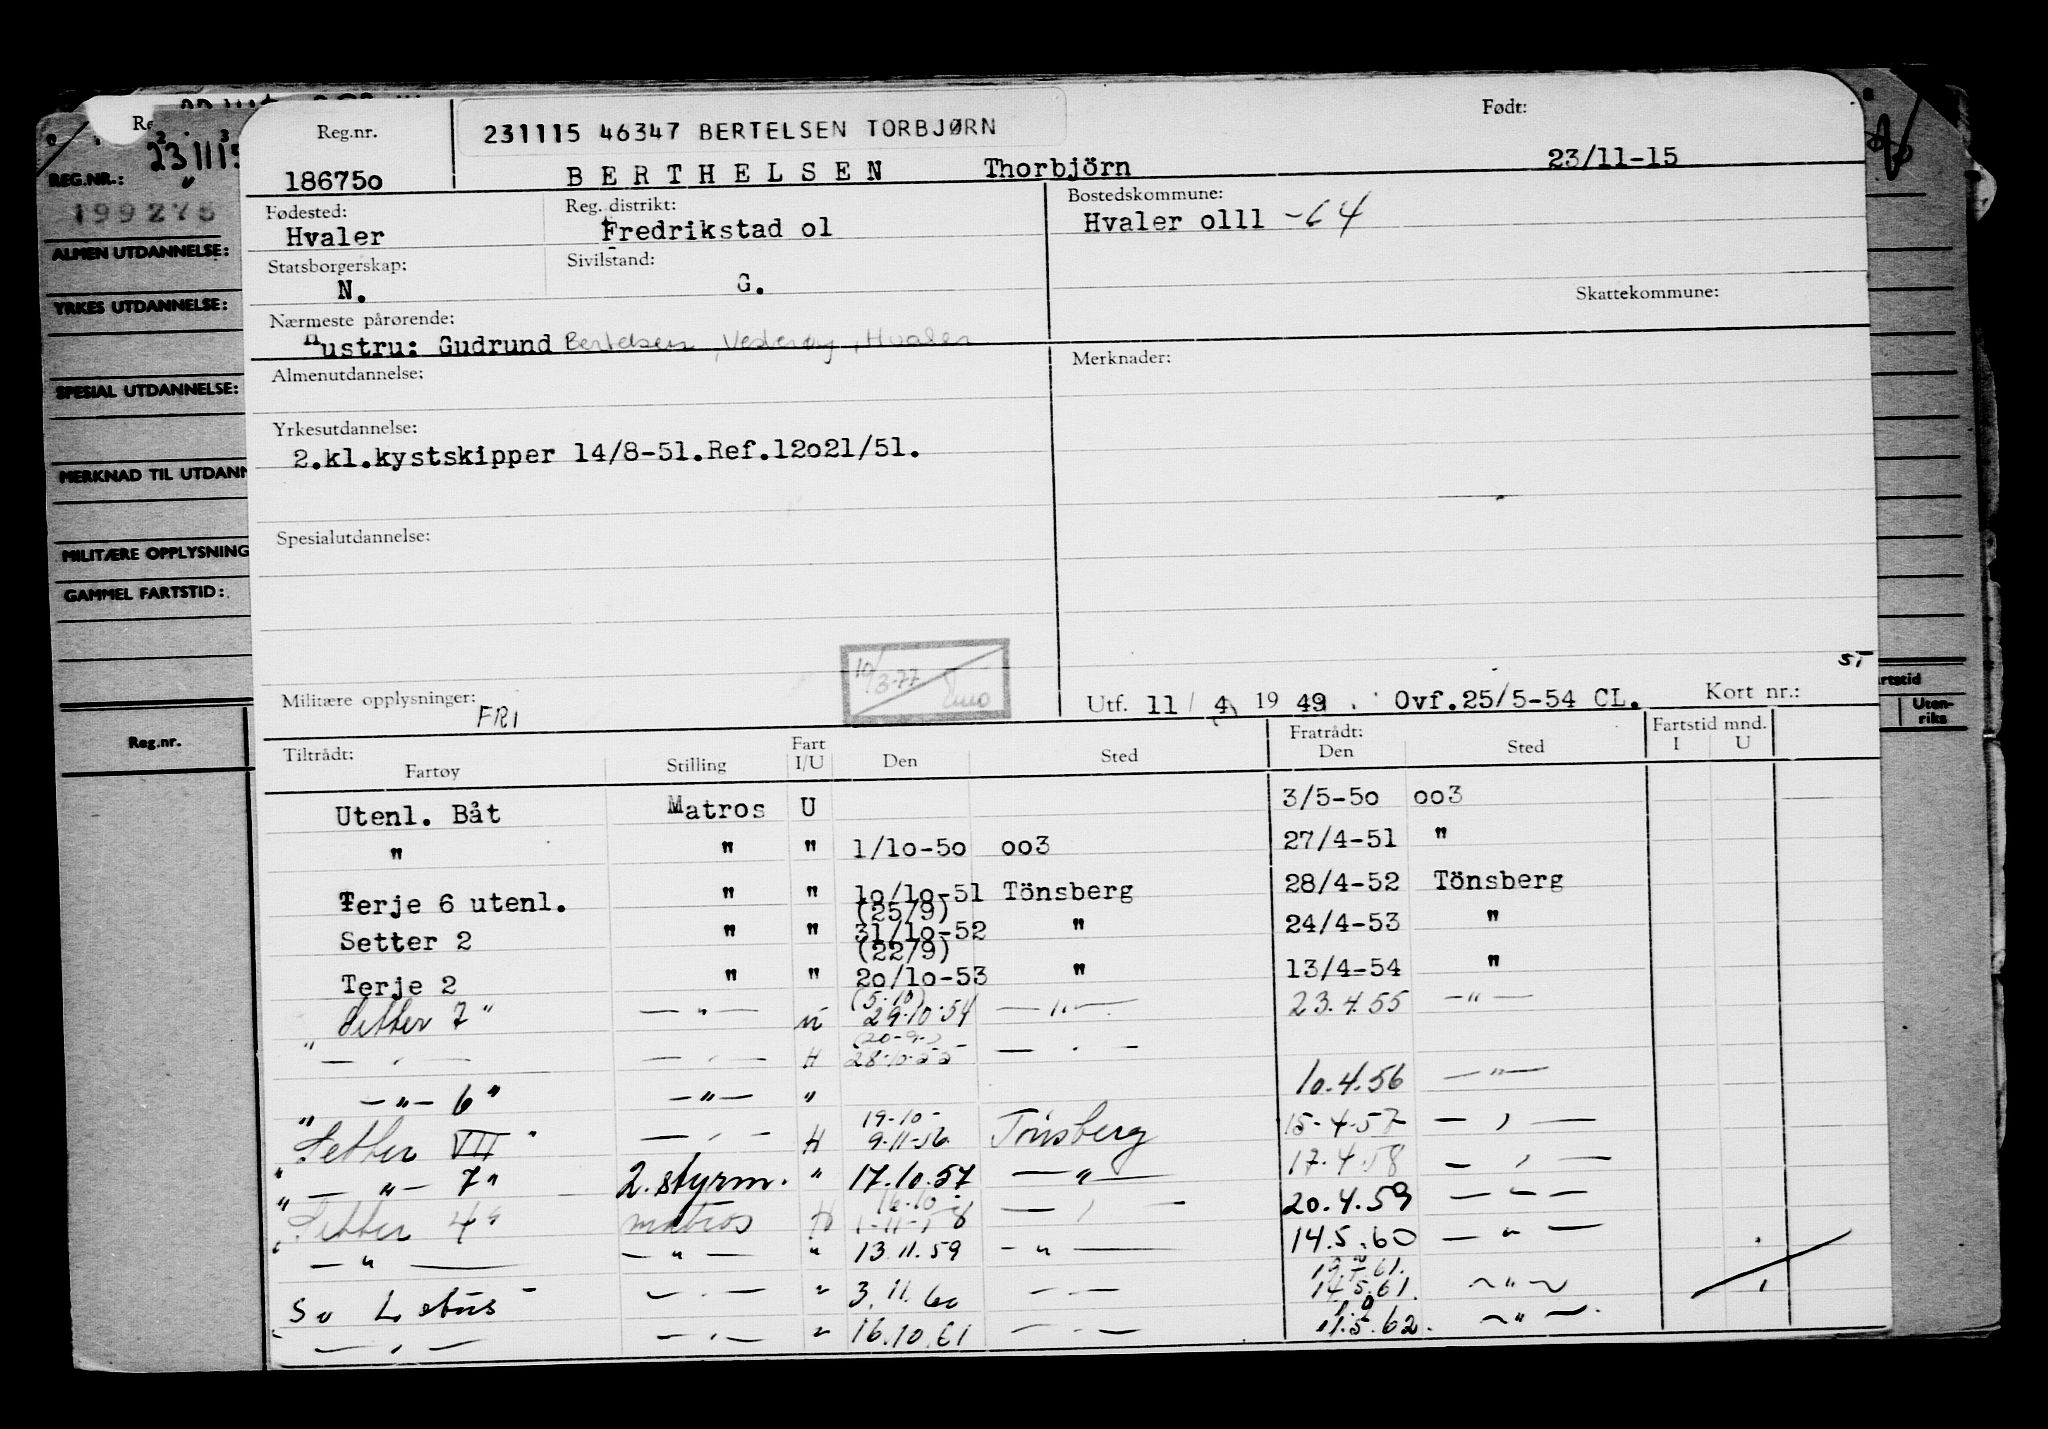 Reg.nr.
231115 46347 BERTELSEN TORBJØRN
Født:
18675o
BERTHELSEN Thorbjörn
23/11-15
Fødested:
Hvaler
Reg. distrikt:
Fredrikstad ol
Bostedskommune:
Hvaler olll -64
Statsborgerskap:
N.
Sivilstand:
G.
Skattekommune:
Nærmeste pårørende:
Hustru: Gudrund Bertelsen, Vesterøy, Hvaler
Merknader:
Almenutdannelse:
Yrkesutdannelse:
2.kl.kystskipper 14/8-51.Ref.12o21/51.
Spesialutdannelse:
10/3-77
ST
Militære opplysninger:
FRI
Utf. 11/ 4 1949. Ovf.25/5-54 CL. Kort nr.:
Tiltrådt: Fartøy Stilling Fart I/U Den Sted Fratrådt: Den Sted Fartstid mnd. I U
Utenl. Båt Matros U 3/5-5o oo3
" " " 1/1o-5o oo3 27/4-51 "
Terje 6 utenl. " " 1o/1o-51 Tönsberg 28/4-52 Tönsberg
(25/9)
Setter 2 " " 31/1o-52 " 24/4-53 "
(22/9)
Terje 2 " " 2o/1o-53 " 13/4-54 "
(5.10)
Setter 7" — " — U 29.10.54 — " — 23.4.55 — " —
(20-9-)
" — " — — " — H 28-10-55 — " —
— " — 6" — " — " 10.4.56 — " —
19-10-
" Setter VII" — " — H 9-11-56 Tønsberg 15-4-57 — " —
" — " — 7" 2. styrm. " 17.10.57 — " — 17.4.58 — " —
16-10-
" Setter 4" matros H 1-11-58 — " — 20.4.59 — " —
" — " — — " — " 13.11.59 — " — 14.5.60 — " —
— " — " 3.11.60 — " — 14.5.61. — " —
" — " — — " — " 16.10.61 — " — 11.5.62. — " —
REG.NR.:
231115
199275
ALMEN UTDANNELSE:
YRKES UTDANNELSE:
SPESIAL UTDANNELSE:
MERKNAD TIL UTDANN
MILITÆRE OPPLYSNING
GAMMEL FARTSTID:
Reg.nr.
artstid
Uten-
riks